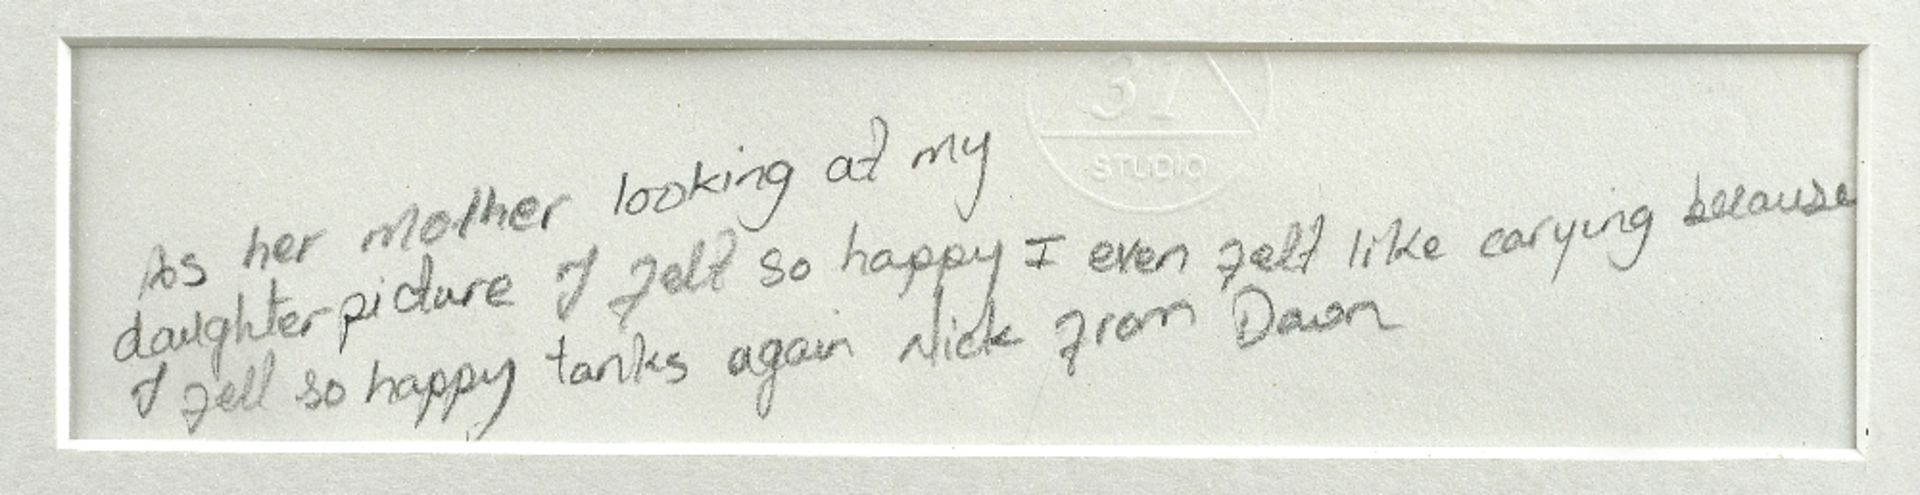 31
STUDIO
As her mother looking at my
daughter picture I felt so happy I even felt like carying because
I fell so happy tanks again Nick from Dawn